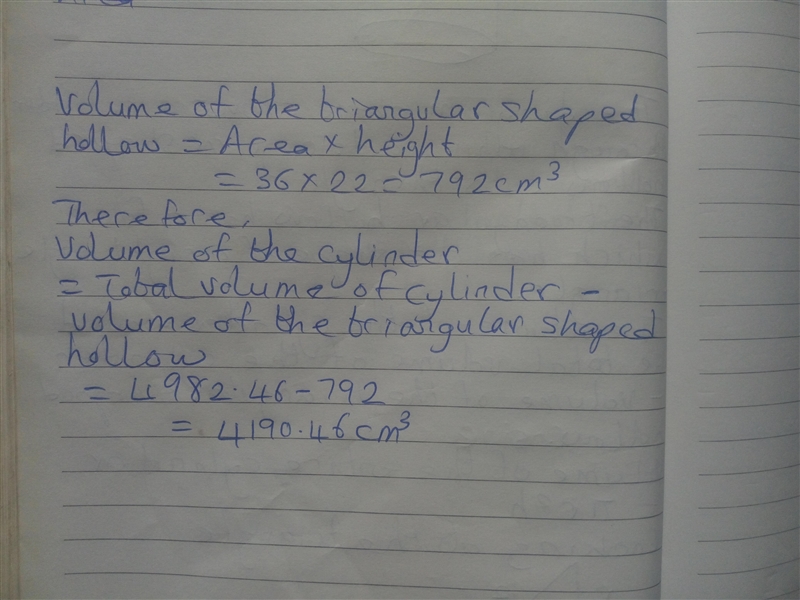 Volume of the triangular shaped
hollow = Area × height
= 36 × 22 = 792cm³
Therefore,
Volume of the cylinder
= Total volume of cylinder -
volume of the triangular shaped
hollow
= 4982.46 - 792
= 4190.46cm³